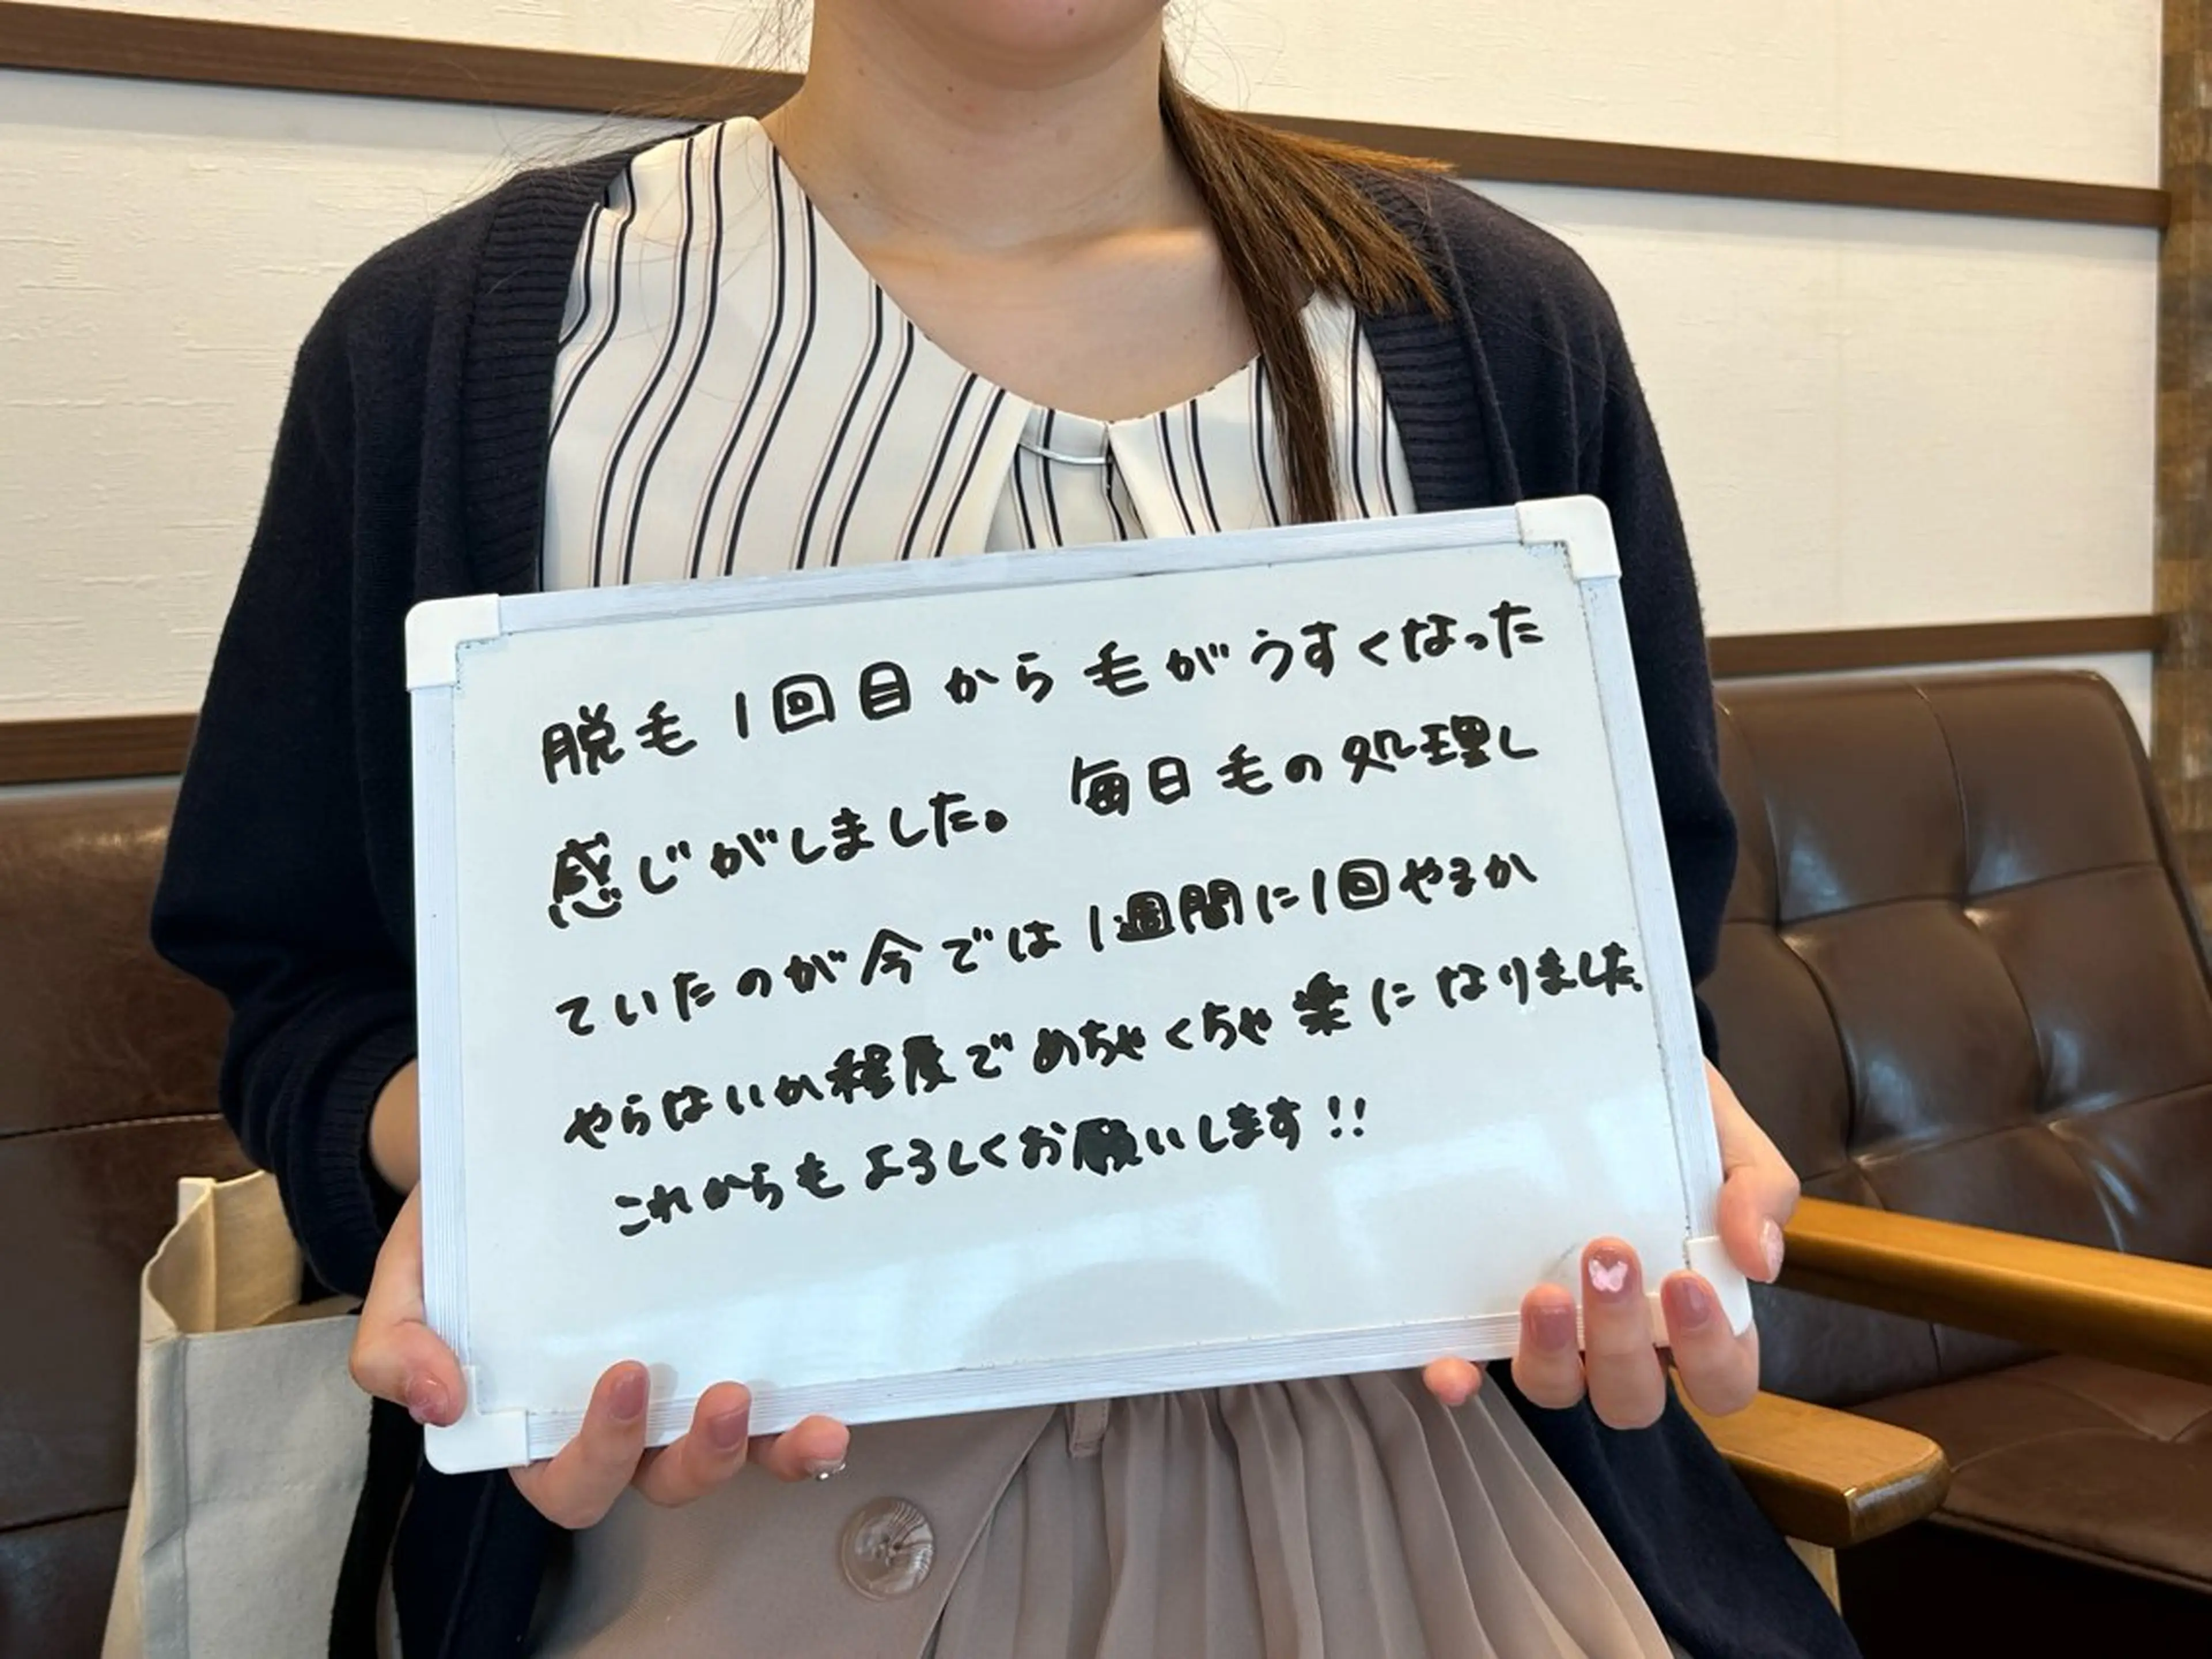 脱毛1回目から毛がうすくなった
感じがしました。 毎日毛の処理し
ていたのが今では1週間に1回やるか
やらないか程度でめちゃくちゃ楽になりました。
これからもよろしくお願いします!!